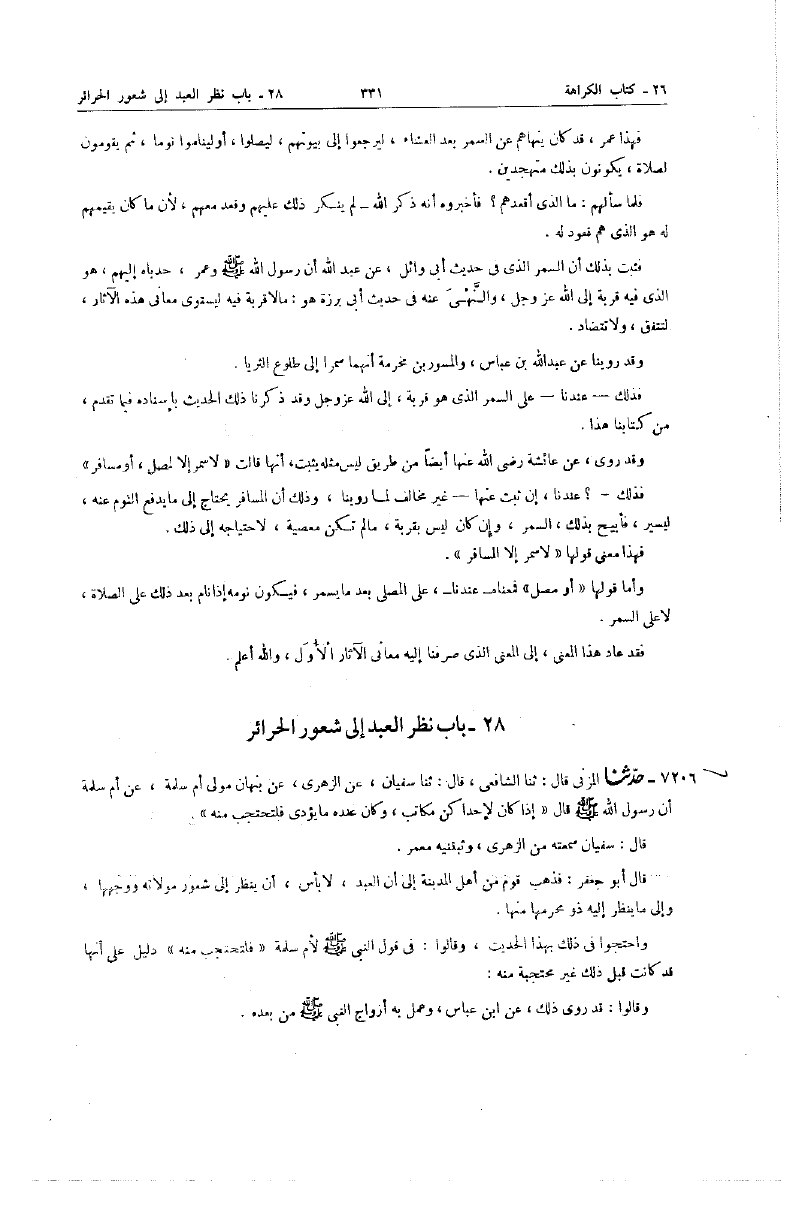 ٢٦ - كتاب الكراهة ٣٣١ ٢٨ - باب نظر العبد إلى شعور الحرائر
فهذا عمر ، قد كان ينهاهم عن السمر بعد العشاء ، ليرجعوا إلى بيوتهم ، ليصلوا ، أوليناموا نوما ، ثم يقومون
لصلاة ، يكونون بذلك متهجدين .
فلما سألهم : ما الذى أقعدهم ؟ فأخبروه أنه ذكر الله ــ لم ينكر ذلك عليهم وقعد معهم ، لأن ما كان يقيمهم
له هو الذى هم قعود له .
فثبت بذلك أن السمر الذى فى حديث أبى وائل ، عن عبد الله أن رسول الله ﷺ وعمر ، حدباه إليهم ، هو
الذى فيه قربة إلى الله عز وجل ، والنَّهْىَ عنه فى حديث أبى برزة هو : مالاقربة فيه ليستوى معانى هذه الآثار ،
لتتفق ، ولاتتضاد .
وقد روينا عن عبدالله بن عباس ، والمسور بن مخرمة أنهما سمرا إلى طلوع الثريا .
فذلك — عندنا — على السمر الذى هو قربة ، إلى الله عزوجل وقد ذكرنا ذلك الحديث بإسناده فيما تقدم ،
من كتابنا هذا .
وقد روى ، عن عائشة رضى الله عنها أيضاً من طريق ليس مثله يثبت ، أنها قالت « لاسمر إلا لمصل ، أو مسافر »
فذلك - ؟ عندنا ، إن ثبت عنها — غير مخالف لما روينا ، وذلك أن المسافر يحتاج إلى مايدفع النوم عنه ،
ليسير ، فأبيح بذلك ، السمر ، وإن كان ليس بقربة ، مالم تكن معصية ، لاحتياجه إلى ذلك .
فهذا معنى قولها « لاسمر إلا لمسافر » .
وأما قولها « أو مصل » فمعناه ـ عندنا ـ ، على المصلى بعد مايسمر ، فيكون نومه إذا نام بعد ذلك على الصلاة ،
لاعلى السمر .
فقد عاد هذا المعنى ، إلى المعنى الذى صرفنا إليه معانى الآثار الأُوَل ، والله أعلم .
٢٨ - باب نظر العبد إلى شعور الحرائر
٧٢٠٦ - حدّثنا المزنى قال : ثنا الشافعى ، قال : ثنا سفيان ، عن الزهرى ، عن نبهان مولى أم سلمة ، عن أم سلمة
أن رسول الله ﷺ قال « إذا كان لإحداكن مكاتب ، وكان عنده مايؤدى فلتحتجب منه » .
قال : سفيان سمعته من الزهرى ، وثبتنيه معمر .
قال أبو جعفر : فذهب قوم من أهل المدينة إلى أن العبد ، لابأس ، أن ينظر إلى شعور مولاته ووجهها ،
وإلى ماينظر إليه ذو محرمها منها .
واحتجوا فى ذلك بهذا الحديث ، وقالوا : فى قول النبى ﷺ لأم سلمة « فلتحتجب منه » دليل على أنها
قد كانت قبل ذلك غير محتجبة منه :
وقالوا : قد روى ذلك ، عن ابن عباس ، وعمل به أزواج النبى ﷺ من بعده .